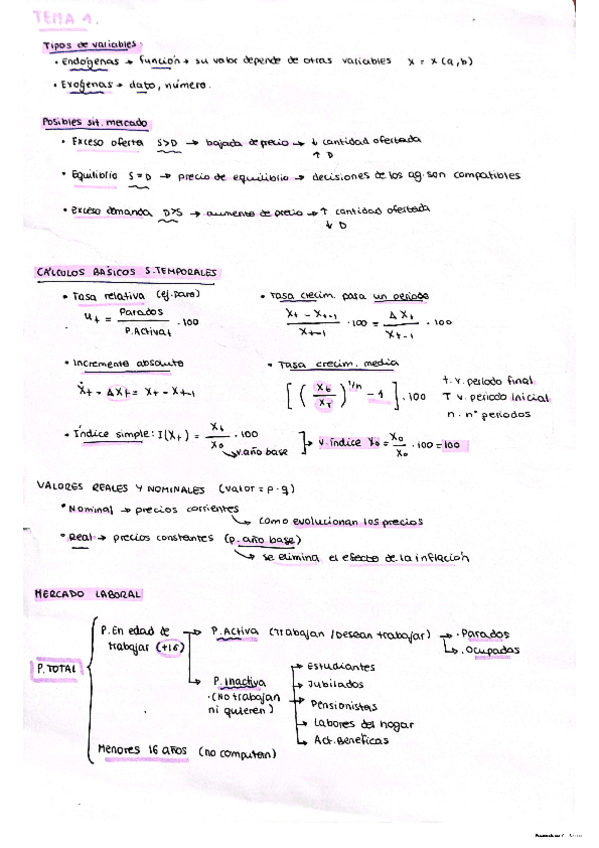 TEMA 1.
Tipos de variables:
• Endógenas → función → su valor depende de otras variables x = x (a,b)
• Exógenas → dato, número.
Posibles sit. mercado
• Exceso oferta S>D → bajada de precio → ↓ cantidad ofertada
↑ D
• Equilibrio S=D → precio de equilibrio → decisiones de los ag. son compatibles
• Exceso demanda D>S → aumento de precio → ↑ cantidad ofertada
↓ D
CÁLCULOS BÁSICOS S. TEMPORALES
• Tasa relativa (ej. paro)
u_t = Parados / P. Activa_t · 100
• Tasa crecim. para un periodo
X_t - X_t-1 / X_t-1 · 100 = Δ X_t / X_t-1 · 100
• Incremento absoluto
Ẋ_t = ΔX_t = X_t - X_t-1
• Tasa crecim. media
[ ( X_t / X_T )^1/n - 1 ] · 100
t. v. periodo final
T v. periodo inicial
n. nº periodos
• Índice simple: I(X_t) = X_t / X_0 · 100
v. año base
v. índice X_0 = X_0 / X_0 · 100 = 100
VALORES REALES Y NOMINALES (valor = p · q)
• Nominal → precios corrientes
como evolucionan los precios
• Real → precios constantes (p. año base)
se elimina el efecto de la inflación
MERCADO LABORAL
P. TOTAL
P. En edad de trabajar (+16)
P. Activa (trabajan / Desean trabajar) → • Parados
• Ocupados
P. Inactiva
• (No trabajan
ni quieren)
Estudiantes
Jubilados
Pensionistas
Labores del hogar
Act. Benéficas
Menores 16 años (no computan)